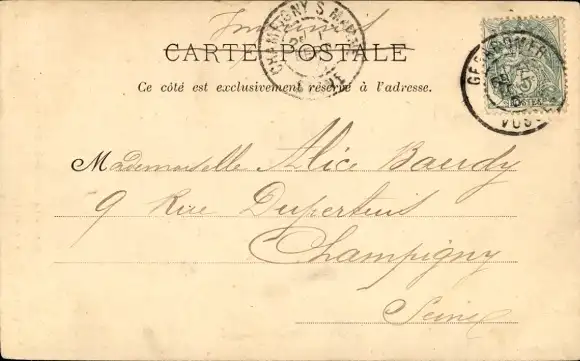 Imprimé
CARTE POSTALE
CHAMPIGNY S MARNE
Ce côté est exclusivement réservé à l'adresse.
GERARDMER
VOSGES
5
POSTES
Mademoiselle Alice Baudy
9 Rue Duperteuis
Champigny
Seine